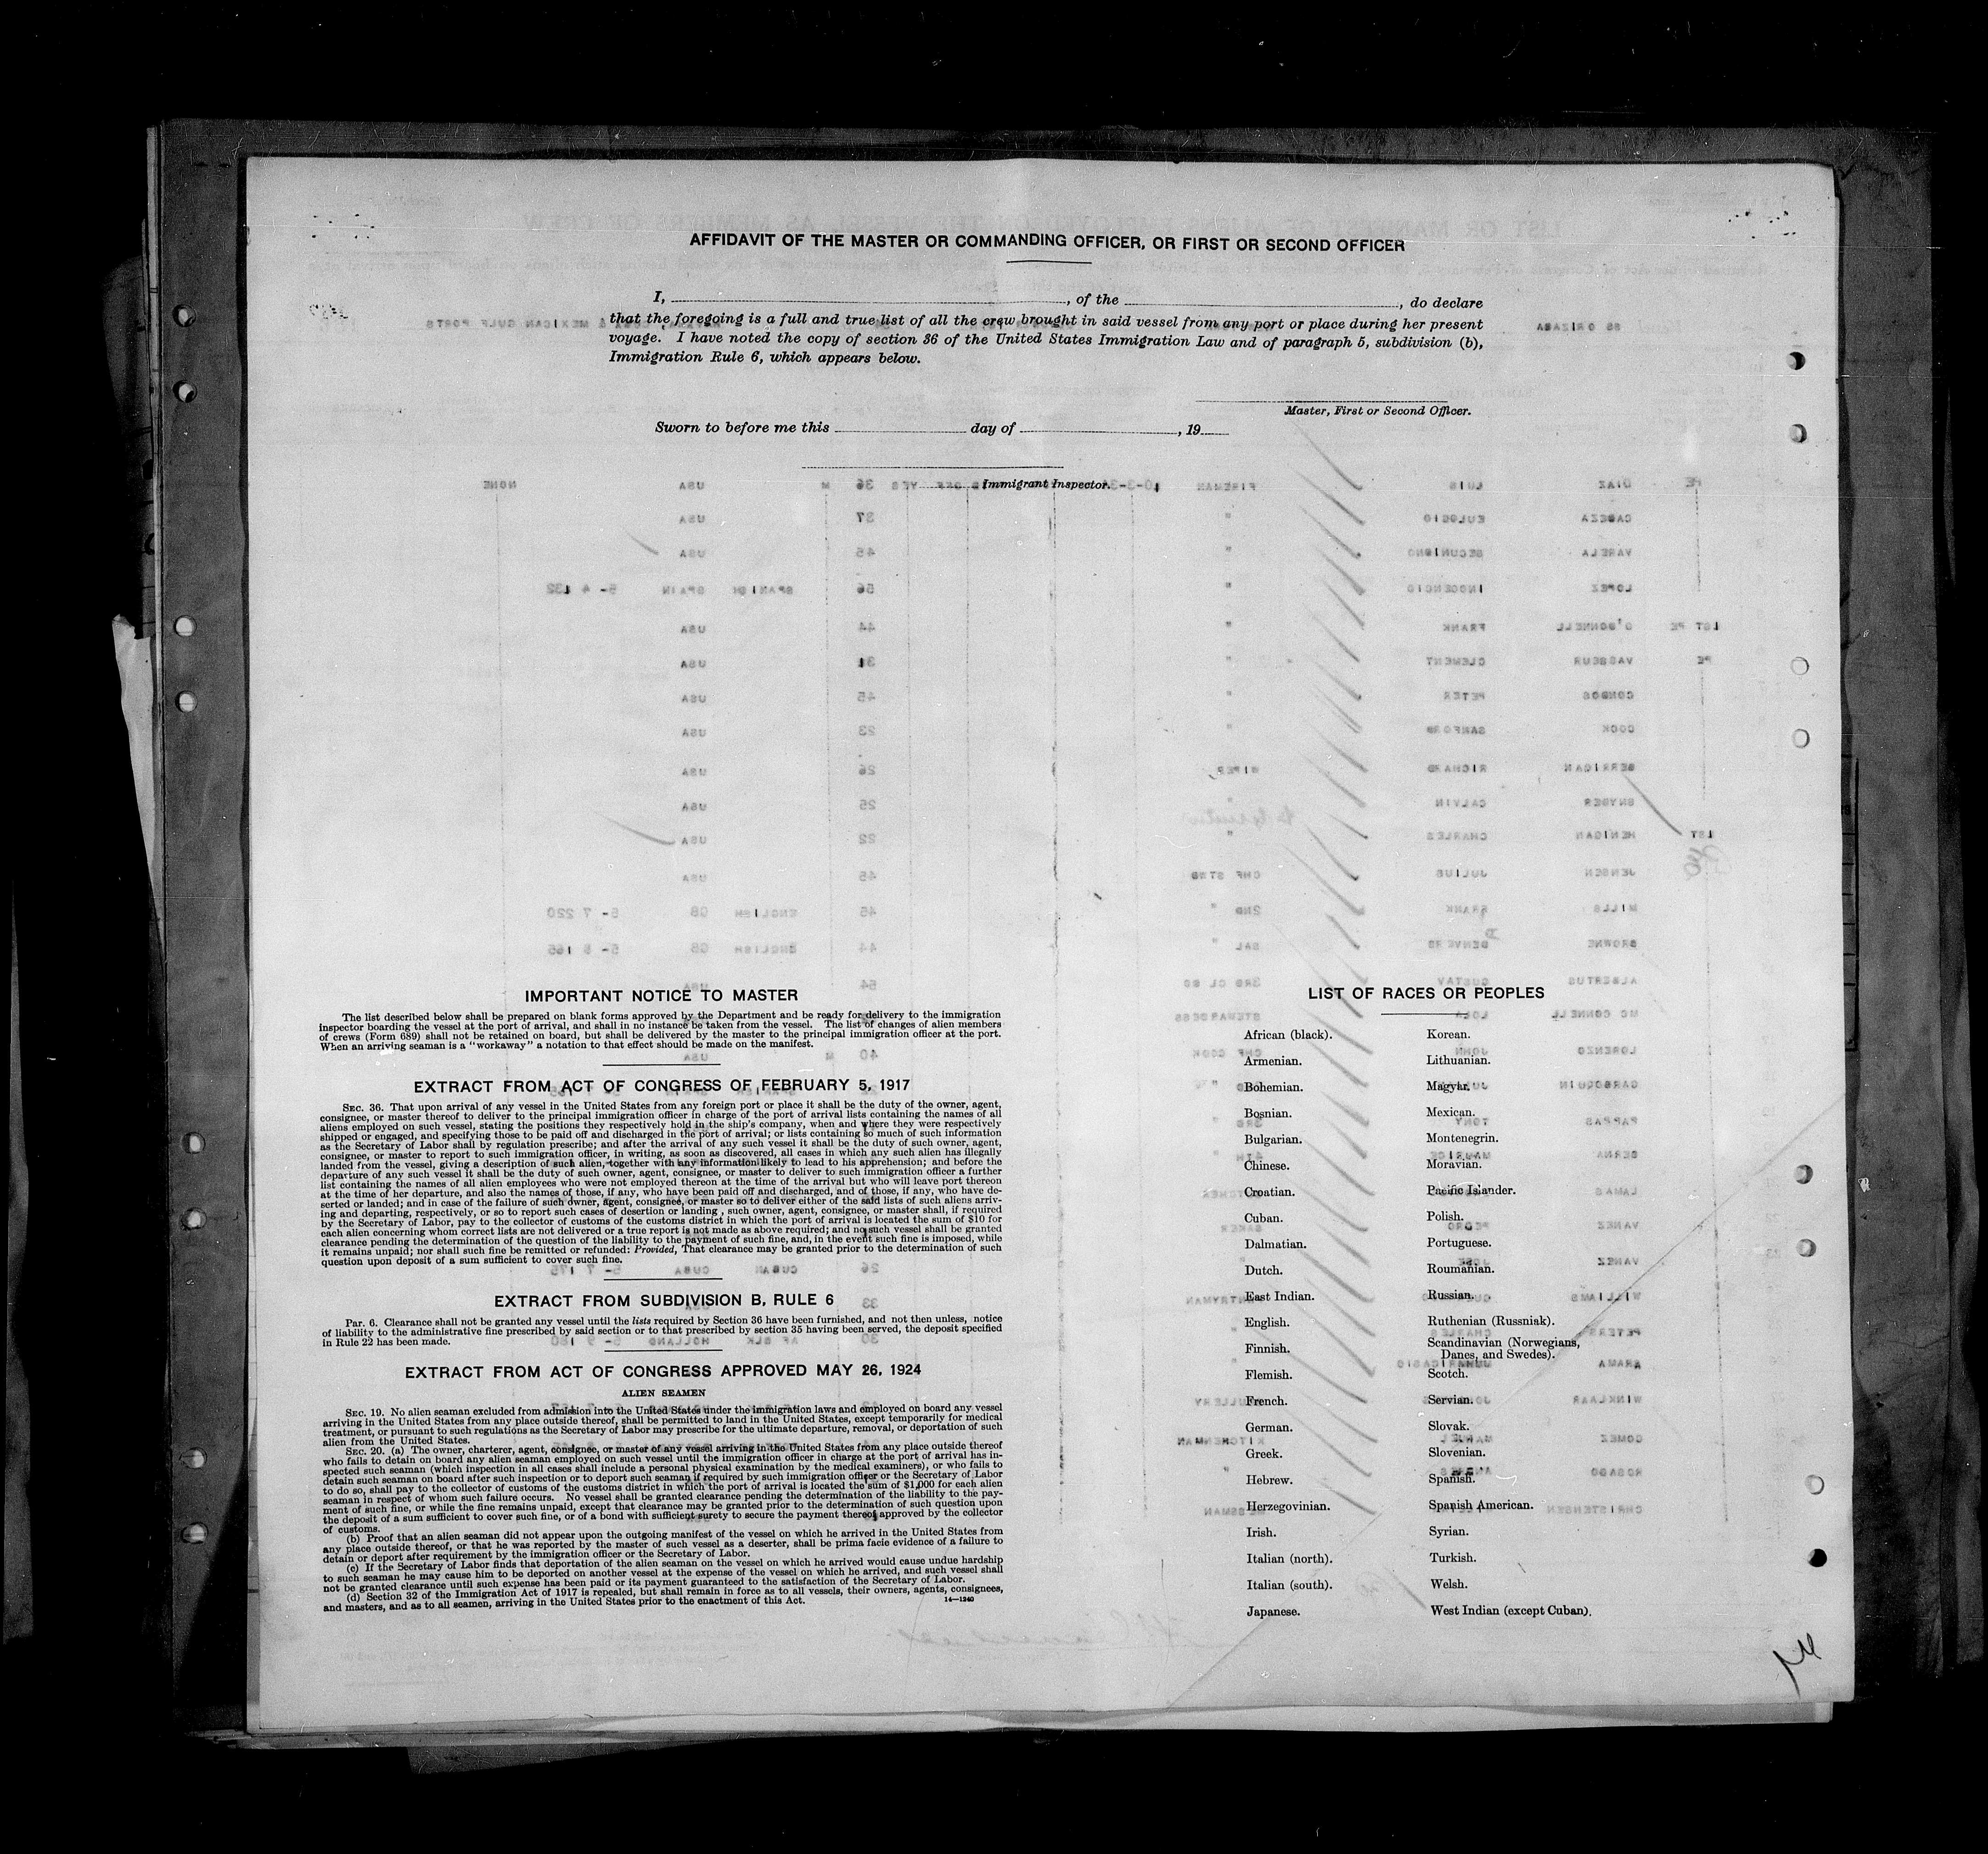 AFFIDAVIT OF THE MASTER OR COMMANDING OFFICER, OR FIRST OR SECOND OFFICER
I, , of the , do declare
that the foregoing is a full and true list of all the crew brought in said vessel from any port or place during her present
voyage. I have noted the copy of section 36 of the United States Immigration Law and of paragraph 5, subdivision (b),
Immigration Rule 6, which appears below.
Master, First or Second Officer.
Sworn to before me this day of , 19
Immigrant Inspector.
IMPORTANT NOTICE TO MASTER
The list described below shall be prepared on blank forms approved by the Department and be ready for delivery to the immigration
inspector boarding the vessel at the port of arrival, and shall in no instance be taken from the vessel. The list of changes of alien members
of crews (Form 689) shall not be retained on board, but shall be delivered by the master to the principal immigration officer at the port.
When an arriving seaman is a "workaway" a notation to that effect should be made on the manifest.
EXTRACT FROM ACT OF CONGRESS OF FEBRUARY 5, 1917
SEC. 36. That upon arrival of any vessel in the United States from any foreign port or place it shall be the duty of the owner, agent,
consignee, or master thereof to deliver to the principal immigration officer in charge of the port of arrival lists containing the names of all
aliens employed on such vessel, stating the positions they respectively hold in the ship's company, when and where they were respectively
shipped or engaged, and specifying those to be paid off and discharged in the port of arrival; or lists containing so much of such information
as the Secretary of Labor shall by regulation prescribe; and after the arrival of any such vessel it shall be the duty of such owner, agent,
consignee, or master to report to such immigration officer, in writing, as soon as discovered, all cases in which any such alien has illegally
landed from the vessel, giving a description of such alien, together with any information likely to lead to his apprehension; and before the
departure of any such vessel it shall be the duty of such owner, agent, consignee, or master to deliver to such immigration officer a further
list containing the names of all alien employees who were not employed thereon at the time of the arrival but who will leave port thereon
at the time of her departure, and also the names of those, if any, who have been paid off and discharged, and of those, if any, who have de-
serted or landed; and in case of the failure of such owner, agent, consignee, or master so to deliver either of the said lists of such aliens arriv-
ing and departing, respectively, or so to report such cases of desertion or landing , such owner, agent, consignee, or master shall, if required
by the Secretary of Labor, pay to the collector of customs of the customs district in which the port of arrival is located the sum of $10 for
each alien concerning whom correct lists are not delivered or a true report is not made as above required; and no such vessel shall be granted
clearance pending the determination of the question of the liability to the payment of such fine, and, in the event such fine is imposed, while
it remains unpaid; nor shall such fine be remitted or refunded: Provided, That clearance may be granted prior to the determination of such
question upon deposit of a sum sufficient to cover such fine.
EXTRACT FROM SUBDIVISION B, RULE 6
PAR. 6. Clearance shall not be granted any vessel until the lists required by Section 36 have been furnished, and not then unless, notice
of liability to the administrative fine prescribed by said section or to that prescribed by section 35 having been served, the deposit specified
in Rule 22 has been made.
EXTRACT FROM ACT OF CONGRESS APPROVED MAY 26, 1924
ALIEN SEAMEN
SEC. 19. No alien seaman excluded from admission into the United States under the immigration laws and employed on board any vessel
arriving in the United States from any place outside thereof, shall be permitted to land in the United States, except temporarily for medical
treatment, or pursuant to such regulations as the Secretary of Labor may prescribe for the ultimate departure, removal, or deportation of such
alien from the United States.
SEC. 20. (a) The owner, charterer, agent, consignee, or master of any vessel arriving in the United States from any place outside thereof
who fails to detain on board any alien seaman employed on such vessel until the immigration officer in charge at the port of arrival has in-
spected such seaman (which inspection in all cases shall include a personal physical examination by the medical examiners), or who fails to
detain such seaman on board after such inspection or to deport such seaman if required by such immigration officer or the Secretary of Labor
to do so, shall pay to the collector of customs of the customs district in which the port of arrival is located the sum of $1,000 for each alien
seaman in respect of whom such failure occurs. No vessel shall be granted clearance pending the determination of the liability to the pay-
ment of such fine, or while the fine remains unpaid, except that clearance may be granted prior to the determination of such question upon
the deposit of a sum sufficient to cover such fine, or of a bond with sufficient surety to secure the payment thereof approved by the collector
of customs.
(b) Proof that an alien seaman did not appear upon the outgoing manifest of the vessel on which he arrived in the United States from
any place outside thereof, or that he was reported by the master of such vessel as a deserter, shall be prima facie evidence of a failure to
detain or deport after requirement by the immigration officer or the Secretary of Labor.
(c) If the Secretary of Labor finds that deportation of the alien seaman on the vessel on which he arrived would cause undue hardship
to such seaman he may cause him to be deported on another vessel at the expense of the vessel on which he arrived, and such vessel shall
not be granted clearance until such expense has been paid or its payment guaranteed to the satisfaction of the Secretary of Labor.
(d) Section 32 of the Immigration Act of 1917 is repealed, but shall remain in force as to all vessels, their owners, agents, consignees,
and masters, and as to all seamen, arriving in the United States prior to the enactment of this Act.
14—1240
LIST OF RACES OR PEOPLES
African (black).
Armenian.
Bohemian.
Bosnian.
Bulgarian.
Chinese.
Croatian.
Cuban.
Dalmatian.
Dutch.
East Indian.
English.
Finnish.
Flemish.
French.
German.
Greek.
Hebrew.
Herzegovinian.
Irish.
Italian (north).
Italian (south).
Japanese.
Korean.
Lithuanian.
Magyar.
Mexican.
Montenegrin.
Moravian.
Pacific Islander.
Polish.
Portuguese.
Roumanian.
Russian.
Ruthenian (Russniak).
Scandinavian (Norwegians,
Danes, and Swedes).
Scotch.
Servian.
Slovak.
Slovenian.
Spanish.
Spanish American.
Syrian.
Turkish.
Welsh.
West Indian (except Cuban).